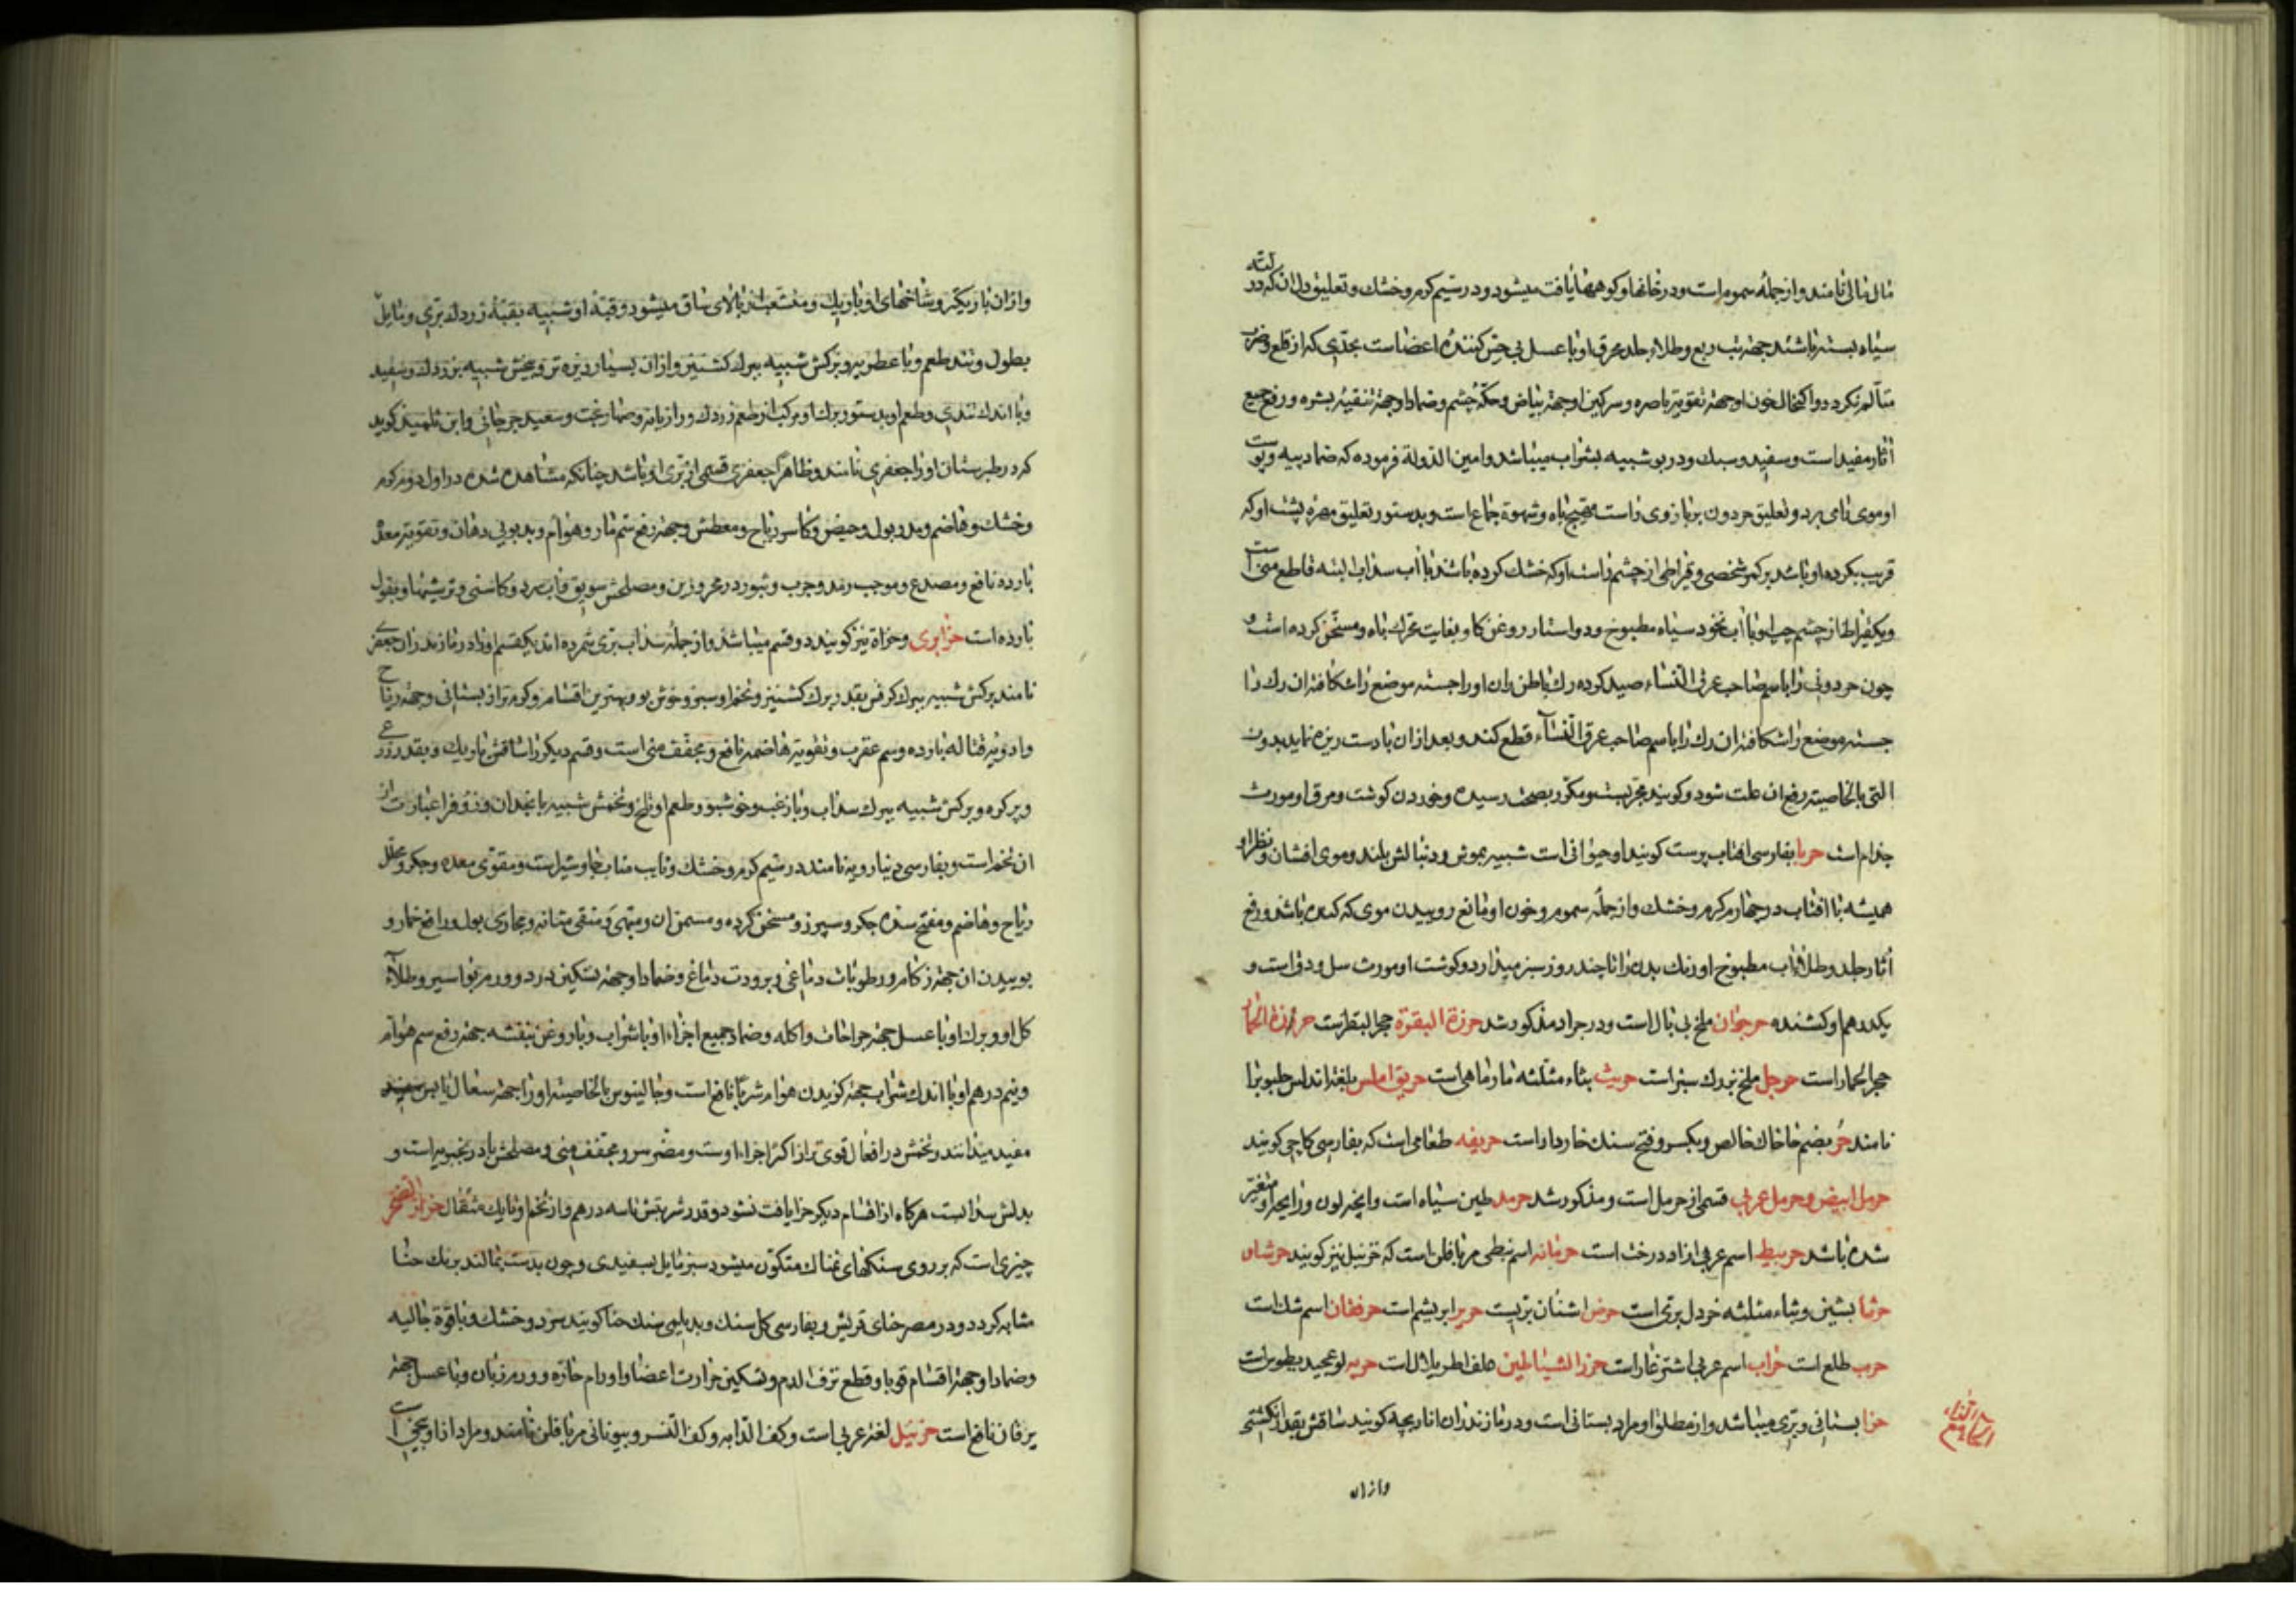 مال نالی نامند و از جمله سموم است و در خانها و کوهها یافت میشود و در سیم کرم و خشك و تعلیق دل ان که در لته
سیاه بسته باشند جهة تب ربع و طلاء جلد محرق او با عسل بی حس کنندهٔ اعضاست بحدی که از قطع و ضرب
متألم نکردد و اکتحال خون او جهة تقویة باصره و سرکین او جهة بیاض و حکهٔ چشم و ضمادا و جهة تنقیهٔ بشره و رفع جمیع
آثار مفید است و سفید و سبك و در بو شبیه بشراب میباشد و امین الدولة فرموده که ضماد پیه و پوست
او موی را می برد و تعلیق حردون بر بازوی راست مهیج باه و شهوة جماع است و بدستور تعلیق مهرهٔ پشت او که
قریب بکرده او باشد بر کمر شخصی و قیراطی از چشم راست او که خشك کرده باشند با آب سداب البته قاطع منی است
و یکقیراط از چشم چپ او با آب نخود سیاه مطبوخ و دو استار روغن کاو بغایت محرك باه و مسخن کرده است و
چون حردونی را باسم صاحب عرق النساء صید کرده رك باطن ران او را جسته موضع را شکافته ان رك را
جسته موضع را شکافته ان رك را باسم صاحب عرق النساء قطع کند و بعد ازان با دست ریزه نماید بدون
التی بالخاصیة رفع ان علت شود و کویند مجربست و مکرر بصحت رسیده و خوردن کوشت و مرق او مورث
جذام است حربا بفارسی افتاب پرست کویند و حیوانی است شبیه بموش و دنبالش بلند و موی افشان و نظر او
همیشه با افتاب در چهارم کرم و خشك و از جمله سموم و خون او مانع روییدن موی که کنده باشند و رفع
آثار جلد و طلاء آب مطبوخ او رنك بدن را تا چند روز سبز میدارد و کوشت او مورث سل و دق است و
یکدرهم او کشنده حرجوان ملخ بی بال است و در جراد مذکور شد حرزة البقرة حجر البقر است حرزة الحمار
حجر الحمار است حرجل ملخ بزرك سبز است حریث بثاء مثلثه مارماهی است حریق املس بلغة اندلس حلبوب را
نامند حر بضم خا خاك خالص و بکسر و فتح سنك خاردار است حریفه طعامی است که بفارسی کاچی کویند
حرمل ابیض و حرمل عربی قسمی از حرمل است و مذکور شد حرمد طین سیاه است و انچه لون و رایحه او متغیر
شده باشد حربیط اسم عربی ازاد درخت است حرنانه اسم نبطی مریافلن است که حزنبل نیز کویند حرشاف
حرشا بشین و ثاء مثلثه خردل بری است حرض اشنان تریست حریر ابریشم است حرفقان اسم شك است
حرب طلع است حراب اسم عربی اشترغار است حرز الشیاطین
حزا بستانی و بری میباشد و از مطلق او مراد بستانی است و در مازندران اناریجه کویند ساقش بقدر انکشتی
الحاء مع الزاء
و ازان
و ازان باریکتر و شاخهای او باریك و منشعب از بالای ساق میشود و قبهٔ او شبیه بقبهٔ زردك بری و مایل
بطول و تند طعم و با عطریه و برکش شبیه ببرك کشنیز و ازان بسیار ریزه تر و بیخش شبیه بزردك و سفید
و با اندك تندی و طعم او بدستور برك او مرکب از طعم زردك و رازیانه و سعید جرجانی و ابن تلمیذ کوید
که در طبرستان او را جعفری نامند و ظاهرا جعفری قسمی از بری او باشد چنانکه مشاهده شده در اول دوم کرم
و خشك و هاضم و مدر بول و حیض و کاسر ریاح و معطش و جهة رفع سم مار و هوام و بدبویی دهان و تقویة معدهٔ
بارده نافع و مصدع و موجب رمد و جرب و بثور در محرورین و مصلحش سویق و آب سرد و کاسنی و ترشیها و بقول
بارده است حزا بری و حزاة نیز کویند دو قسم میباشد و از جمله سداب بری شمرده اند یکقسم او را در مازندران جعفری
نامند برکش شبیه ببرك کرفس بقدر برك کشنیز و تخم او سبز و خوش بو و بهترین اقسام و کرمتر از بستانی و جهة ریاح
و ادویهٔ قتالهٔ بارده و سم عقرب و تقویة هاضمه نافع و مجفف منی است و قسم دیکر را ساقش باریك و بقدر ذرعی
و پر کره و برکش شبیه ببرك سداب و با زغب و خوشبو و طعم او تلخ و تخمش شبیه بانجدان و زوفرا عبارت از
ان تخم است و بفارسی دینارویه نامند در سیم کرم و خشك و نایب مناب جاوشیر است و مقوی معده و جکر و محلل
ریاح و هاضم و مفتح سدهٔ جکر و سپرز و مسخن کرده و مسمن ان و مبهی و منقی مثانه و مجاری بول و رافع خمار و
بوییدن ان جهة زکام و رطوبات دماغی و برودت دماغ و ضمادا و جهة تسکین درد و ورم بواسیر و طلاء
کل او و برك او با عسل جهة جراحات و اکله و ضماد جمیع اجزاء او با شراب و با روغن بنفشه جهة رفع سم هوام
و نیم درهم او با اندك شراب جهة کزیدن هوام شربا نافع است و جالینوس بالخاصیة او را جهة سعال یابس
مفید میدانند و تخمش در افعال قوی تر از اکثر اجزاء اوست و مضر سر و مجفف منی و مصلحش بادرنجبویه است و
بدلش سداب است هرکاه از اقسام دیکر حزا یافت نشود و قدر شربتش تا سه درهم و از تخم او تا یك مثقال حزاز الصخر
چیزی است که بر روی سنکهای نمناك متکون میشود سبز مایل بسفیدی و چون بدست بمالند برنك حنا
مشابه کردد و در مصر حنای قریش و بفارسی کل سنك و بدیلمی سنك حنا کویند سرد و خشك و با قوة جالیه
و ضمادا و جهة اقسام قوبا و قطع نزف الدم و تسکین حرارت اعضا و اورام حاره و ورم زبان و با عسل جهة
یرقان نافع است حزنبل لغة عربی است و کف الدابه و کف النسر و بیونانی مریافلن نامند و مراد ازو بیخی است